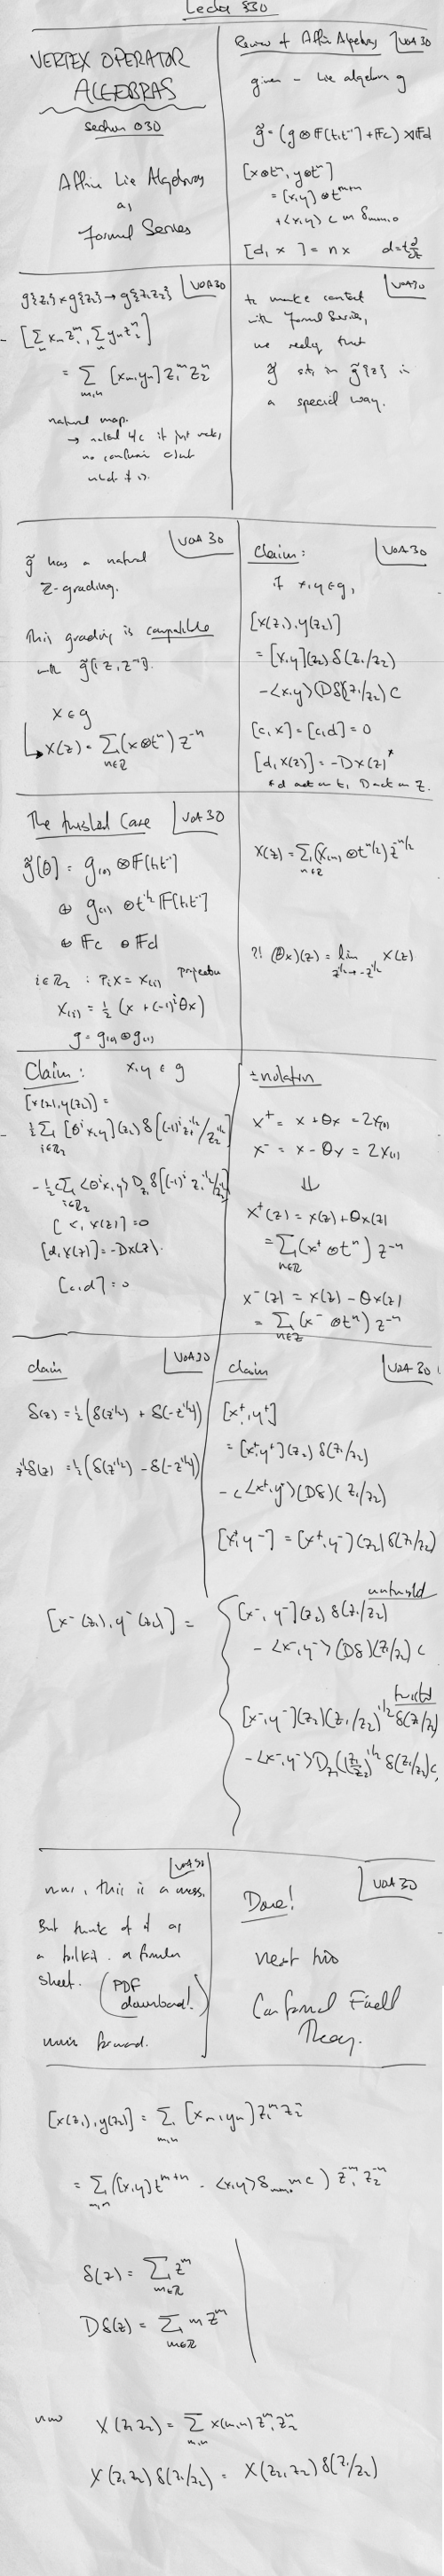 Lecture 330
VERTEX OPERATOR
ALGEBRAS
section 030
Affine Lie Algebras
as
Formal Series
Review of Affine Algebras VOA 30
given - Lie algebra g
g̃ = (g ⊗ F[t,t⁻¹] + Fc) ⋊ Fd
[x⊗tᵐ, y⊗tⁿ]
= [x,y] ⊗ tᵐ⁺ⁿ
+ <x,y> c m δₘ₊ₙ,₀
[d, x ] = n x d = t d/dt
VOA30
g{z₁} × g{z₂} → g{z₁z₂}
[∑ xₘz₁ᵐ, ∑ yₙz₂ⁿ]
= ∑ [xₘ,yₙ] z₁ᵐ z₂ⁿ
m,n
natural map.
→ natural b/c it just works,
no confusion about
what it is.
VOA30
to make contact
with Formal Series,
we realize that
g̃ sits in g̃{z} in
a special way.
VOA 30
g̃ has a natural
Z-grading.
This grading is compatible
with g̃[z, z⁻¹].
x ∈ g
↳ x(z) = ∑ (x⊗tⁿ) z⁻ⁿ
n∈Z
Claim: VOA 30
if x,y ∈ g,
[x(z₁), y(z₂)]
= [x,y](z₂) δ(z₁/z₂)
- <x,y> (Dδ)(z₁/z₂) c
[c, x] = [c,d] = 0
[d, x(z)] = -Dx(z)*
*d acts on t, D acts on z.
The twisted Case VOA 30
g̃[θ] = g₍₀₎ ⊗ F[t,t⁻¹]
⊕ g₍₁₎ ⊗ t^½ F[t,t⁻¹]
⊕ Fc ⊕ Fd
i∈Z₂ : Pᵢx = x₍ᵢ₎ projection
x₍ᵢ₎ = ½ (x + (-1)ⁱθx)
g = g₍₀₎ ⊕ g₍₁₎
x(z) = ∑ (x₍ₙ₎ ⊗ t^n/2) z^-n/2
n∈Z
?! (θx)(z) = lim x(z)
z^½ → -z^½
Claim: x,y ∈ g
[x(z₁), y(z₂)] =
½ ∑ [θⁱx,y](z₂) δ[(-1)ⁱ z₁^½/z₂^½]
i∈Z₂
- ½ c ∑ <θⁱx,y> D_z₁ δ[(-1)ⁱ z₁^½/z₂^½]
i∈Z₂
[c, x(z)] = 0
[d, x(z)] = -Dx(z).
[c,d] = 0
±notation
x⁺ = x + θx = 2x₍₀₎
x⁻ = x - θx = 2x₍₁₎
⇓
x⁺(z) = x(z) + θx(z)
= ∑ (x⁺ ⊗ tⁿ) z⁻ⁿ
n∈Z
x⁻(z) = x(z) - θx(z)
= ∑ (x⁻ ⊗ tⁿ) z⁻ⁿ
n∈Z
claim VOA30
δ(z) = ½ (δ(z^½) + δ(-z^½))
z^½δ(z) = ½ (δ(z^½) - δ(-z^½))
claim VOA 30
[x⁺, y⁺]
= [x⁺,y⁺](z₂) δ(z₁/z₂)
- c<x⁺,y⁺>(Dδ)(z₁/z₂)
[x⁺,y⁻] = [x⁺,y⁻](z₂) δ(z₁/z₂)
[x⁻(z₁), y⁻(z₂)] =
untwisted
[x⁻, y⁻](z₂) δ(z₁/z₂)
- <x⁻,y⁻> (Dδ)(z₁/z₂) c
twisted
[x⁻,y⁻](z₂)(z₁/z₂)^½ δ(z₁/z₂)
- <x⁻,y⁻> D_z₁((z₁/z₂)^½ δ(z₁/z₂)) c
VOA 30
this is a mess.
But think of it as
a toolkit. a formula
sheet. (PDF
download!)
forward.
VOA 30
Done!
next two
Conformal Field
Theory.
[x(z₁), y(z₂)] = ∑ [xₘ,yₙ] z₁ᵐ z₂ⁿ
m,n
= ∑ ([x,y] tᵐ⁺ⁿ - <x,y> δₘ₊ₙ m c ) z₁⁻ᵐ z₂⁻ⁿ
m,n
δ(z) = ∑ zᵐ
m∈Z
Dδ(z) = ∑ m zᵐ
m∈Z
now X(z₁z₂) = ∑ x(m,n) z₁ᵐ z₂ⁿ
m,n
X(z₁z₂) δ(z₁/z₂) = X(z₂,z₂) δ(z₁/z₂)